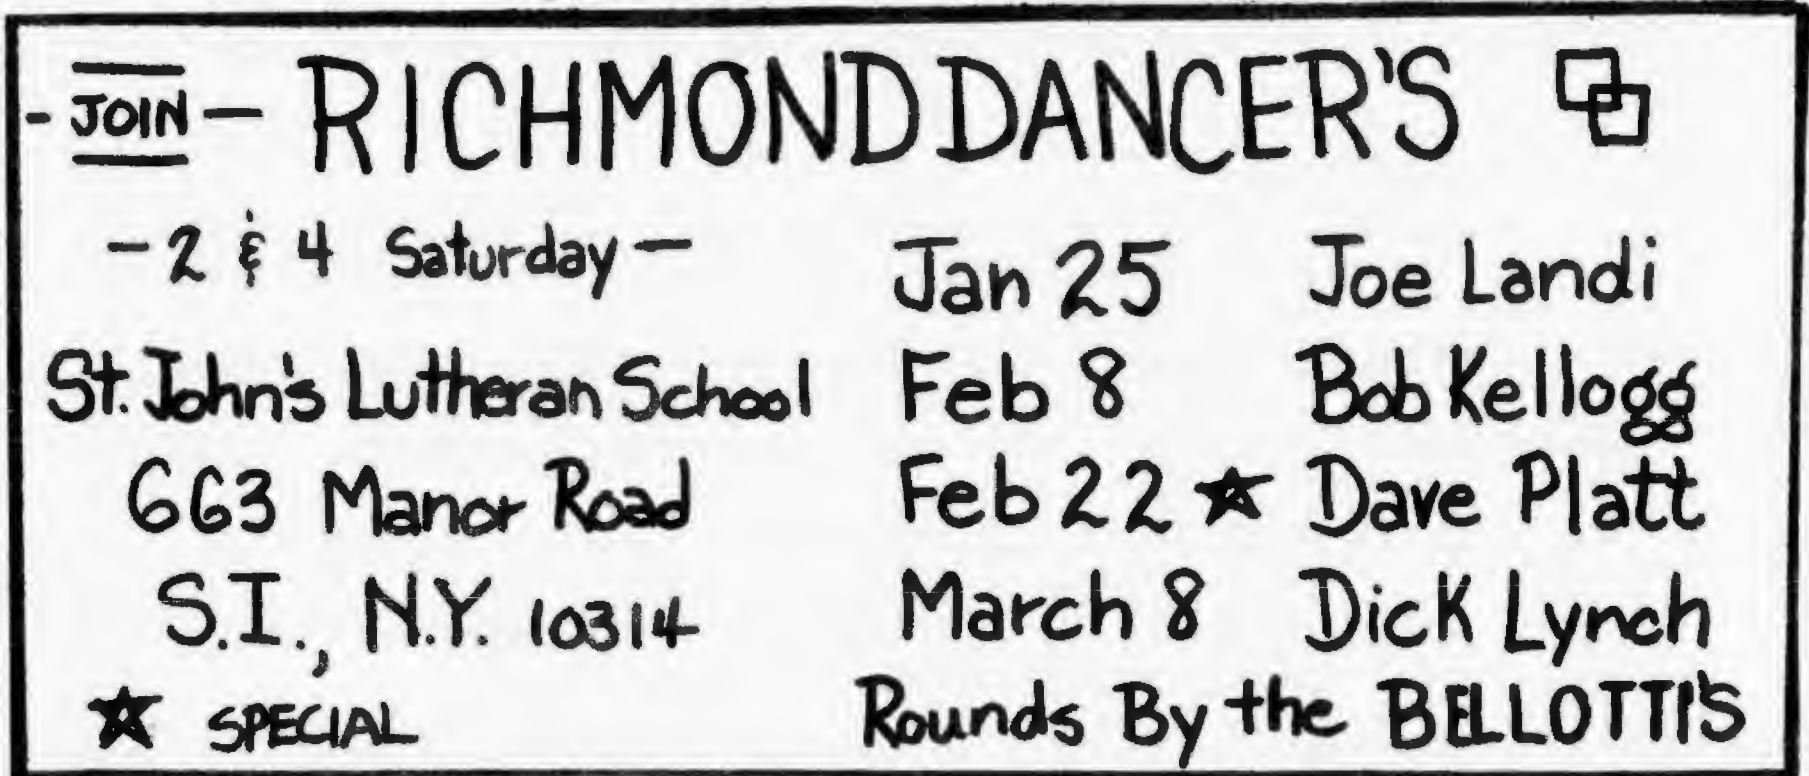 - JOIN - RICHMOND DANCER'S
- 2 & 4 Saturday -
St. John's Lutheran School
663 Manor Road
S.I., N.Y. 10314
★ SPECIAL
Jan 25 Joe Landi
Feb 8 Bob Kellogg
Feb 22 ★ Dave Platt
March 8 Dick Lynch
Rounds By the BELLOTTI'S